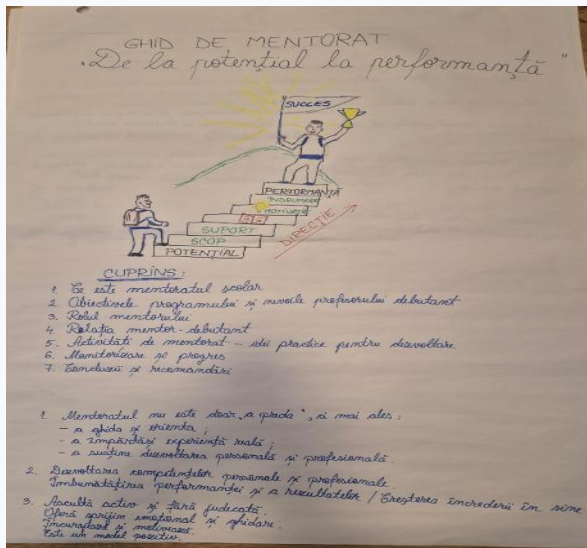 GHID DE MENTORAT
"De la potențial la performanță"
SUCCES
PERFORMANȚĂ
ÎNDRUMARE
MOTIVAȚIE
SUPORT
SCOP
POTENȚIAL
DIRECȚIE
CUPRINS:
1. Ce este mentoratul școlar
2. Obiectivele programului și nevoile profesorului debutant
3. Rolul mentorului
4. Relația mentor-debutant
5. Activități de mentorat - idei practice pentru dezvoltare
6. Monitorizare și progres
7. Concluzii și recomandări
1. Mentoratul nu este doar „a preda", ci mai ales:
- a ghida și orienta;
- a împărtăși experiență reală;
- a susține dezvoltarea personală și profesională.
2. Dezvoltarea competențelor personale și profesionale.
Îmbunătățirea performanței și a rezultatelor / Creșterea încrederii în sine
3. Ascultă activ și fără judecată.
Oferă sprijin emoțional și ghidare.
Încurajează și motivează.
Este un model pozitiv.